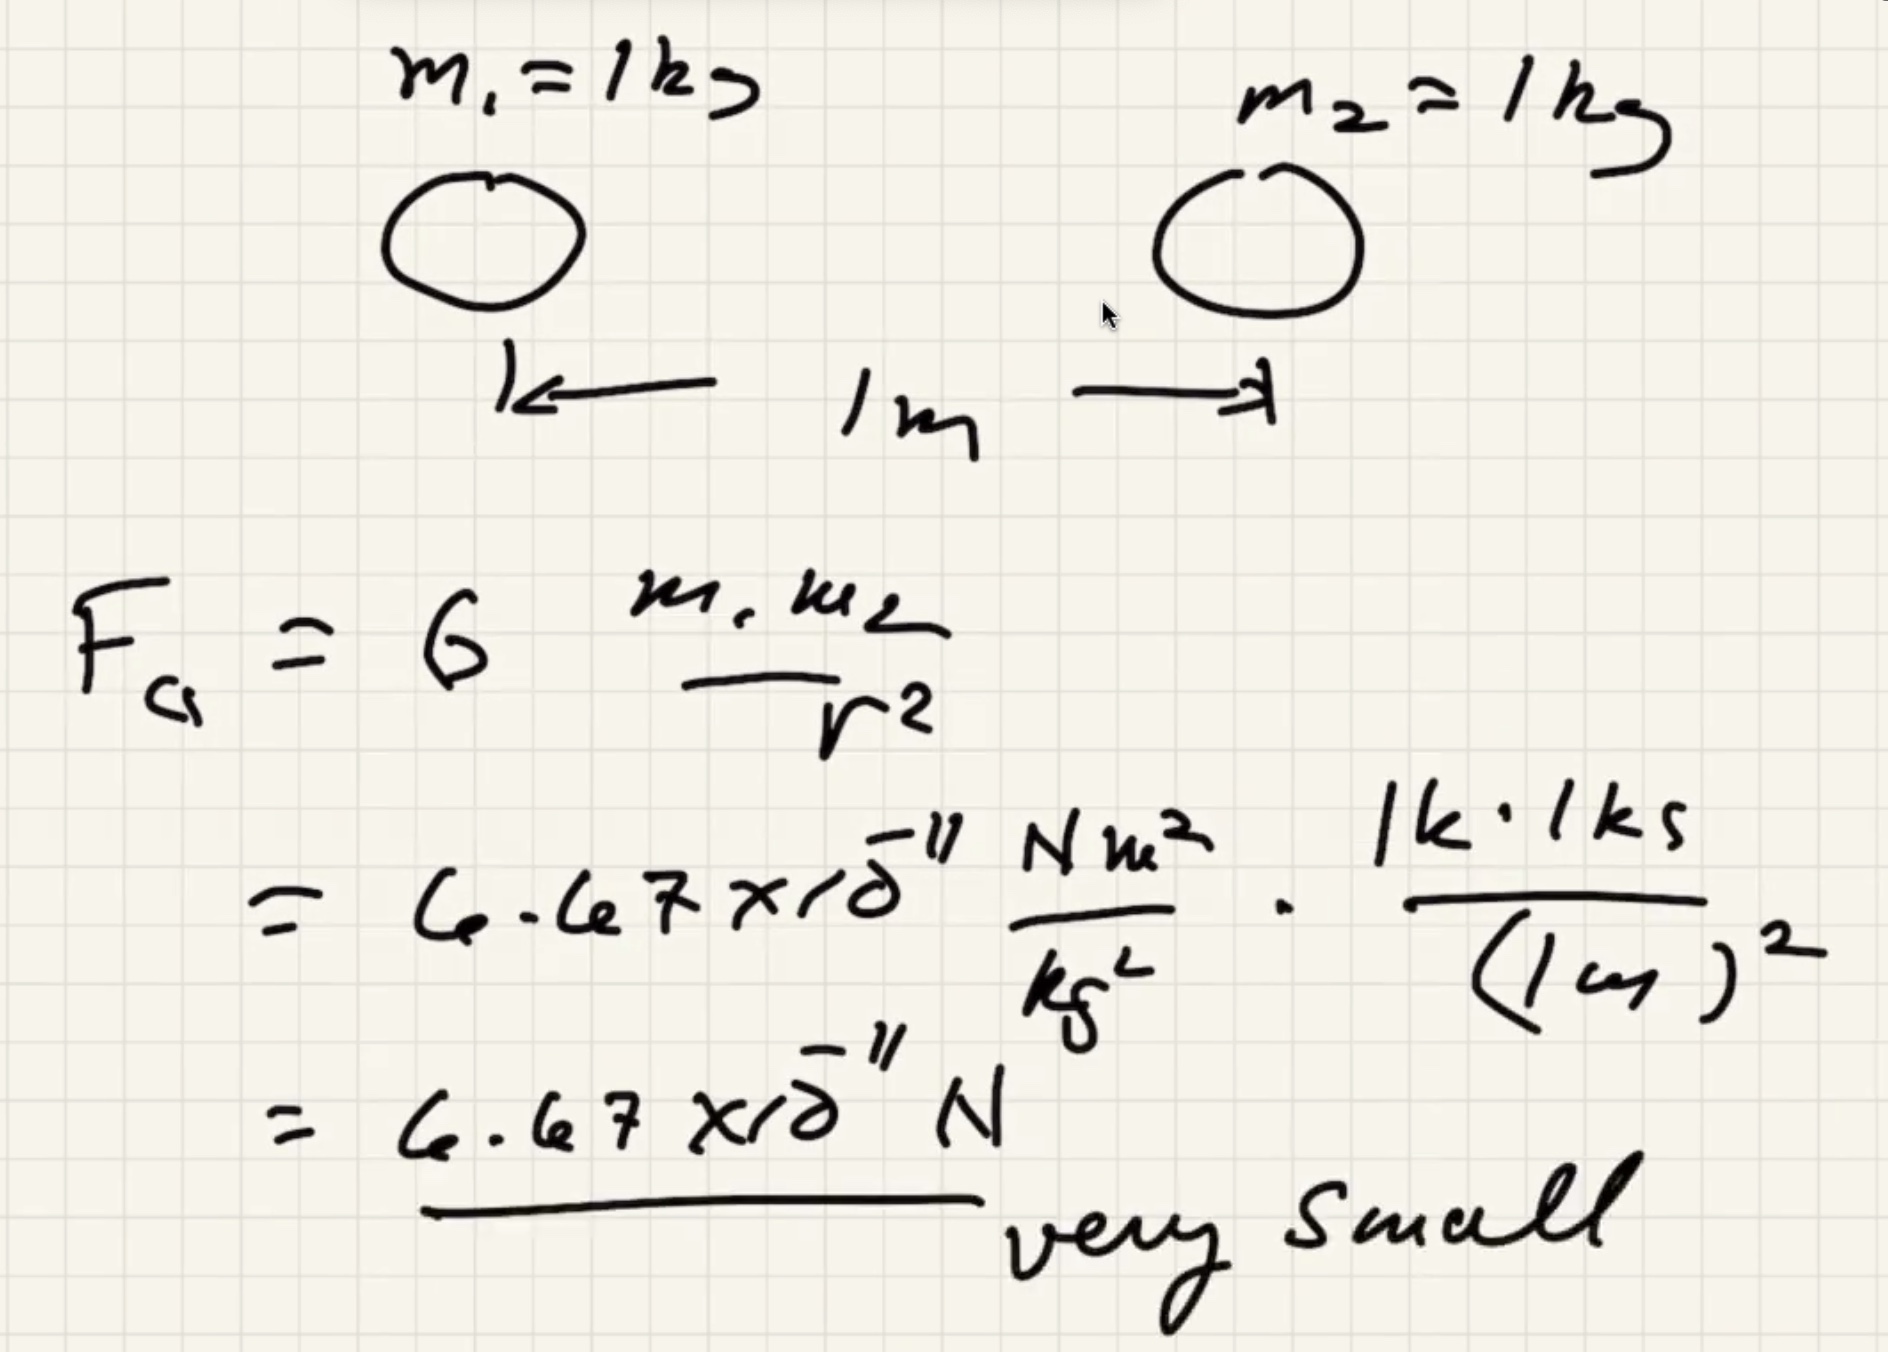 m₁ = 1kg
m₂ = 1kg
1m
F_G = G m₁m₂ / r²
= 6.67 x 10⁻¹¹ Nm² / kg² · 1k · 1kg / (1m)²
= 6.67 x 10⁻¹¹ N
very small